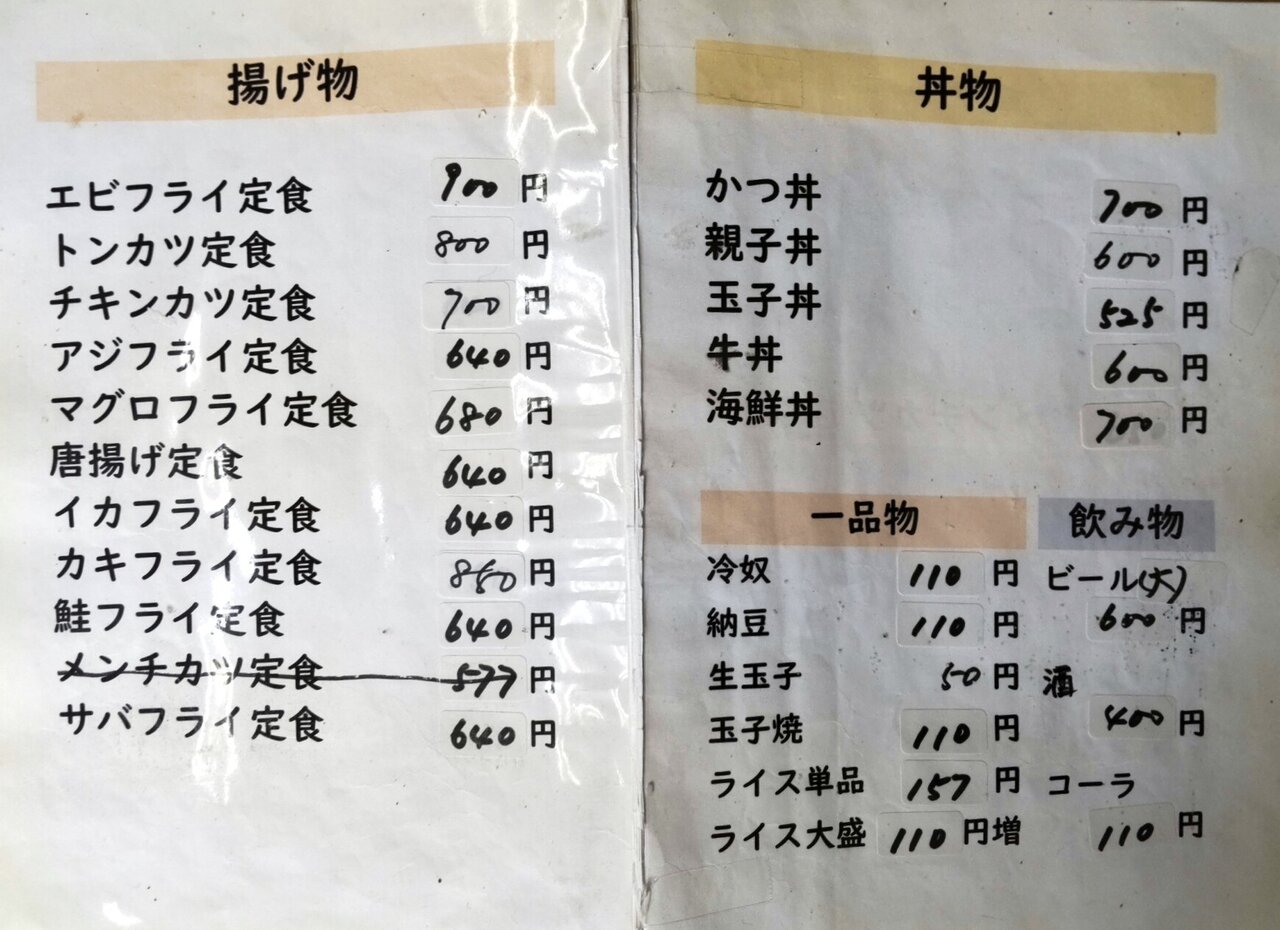 揚げ物
エビフライ定食 900円
トンカツ定食 800円
チキンカツ定食 700円
アジフライ定食 640円
マグロフライ定食 680円
唐揚げ定食 640円
イカフライ定食 640円
カキフライ定食 円
鮭フライ定食 640円
メンチカツ定食 577円
サバフライ定食 640円
丼物
かつ丼 700円
親子丼 600円
玉子丼 525円
牛丼 600円
海鮮丼 700円
一品物
冷奴 110円
納豆 110円
生玉子 50円
玉子焼 110円
ライス単品 157円
ライス大盛 110円増
飲み物
ビール(大)
600円
酒
400円
コーラ
110円